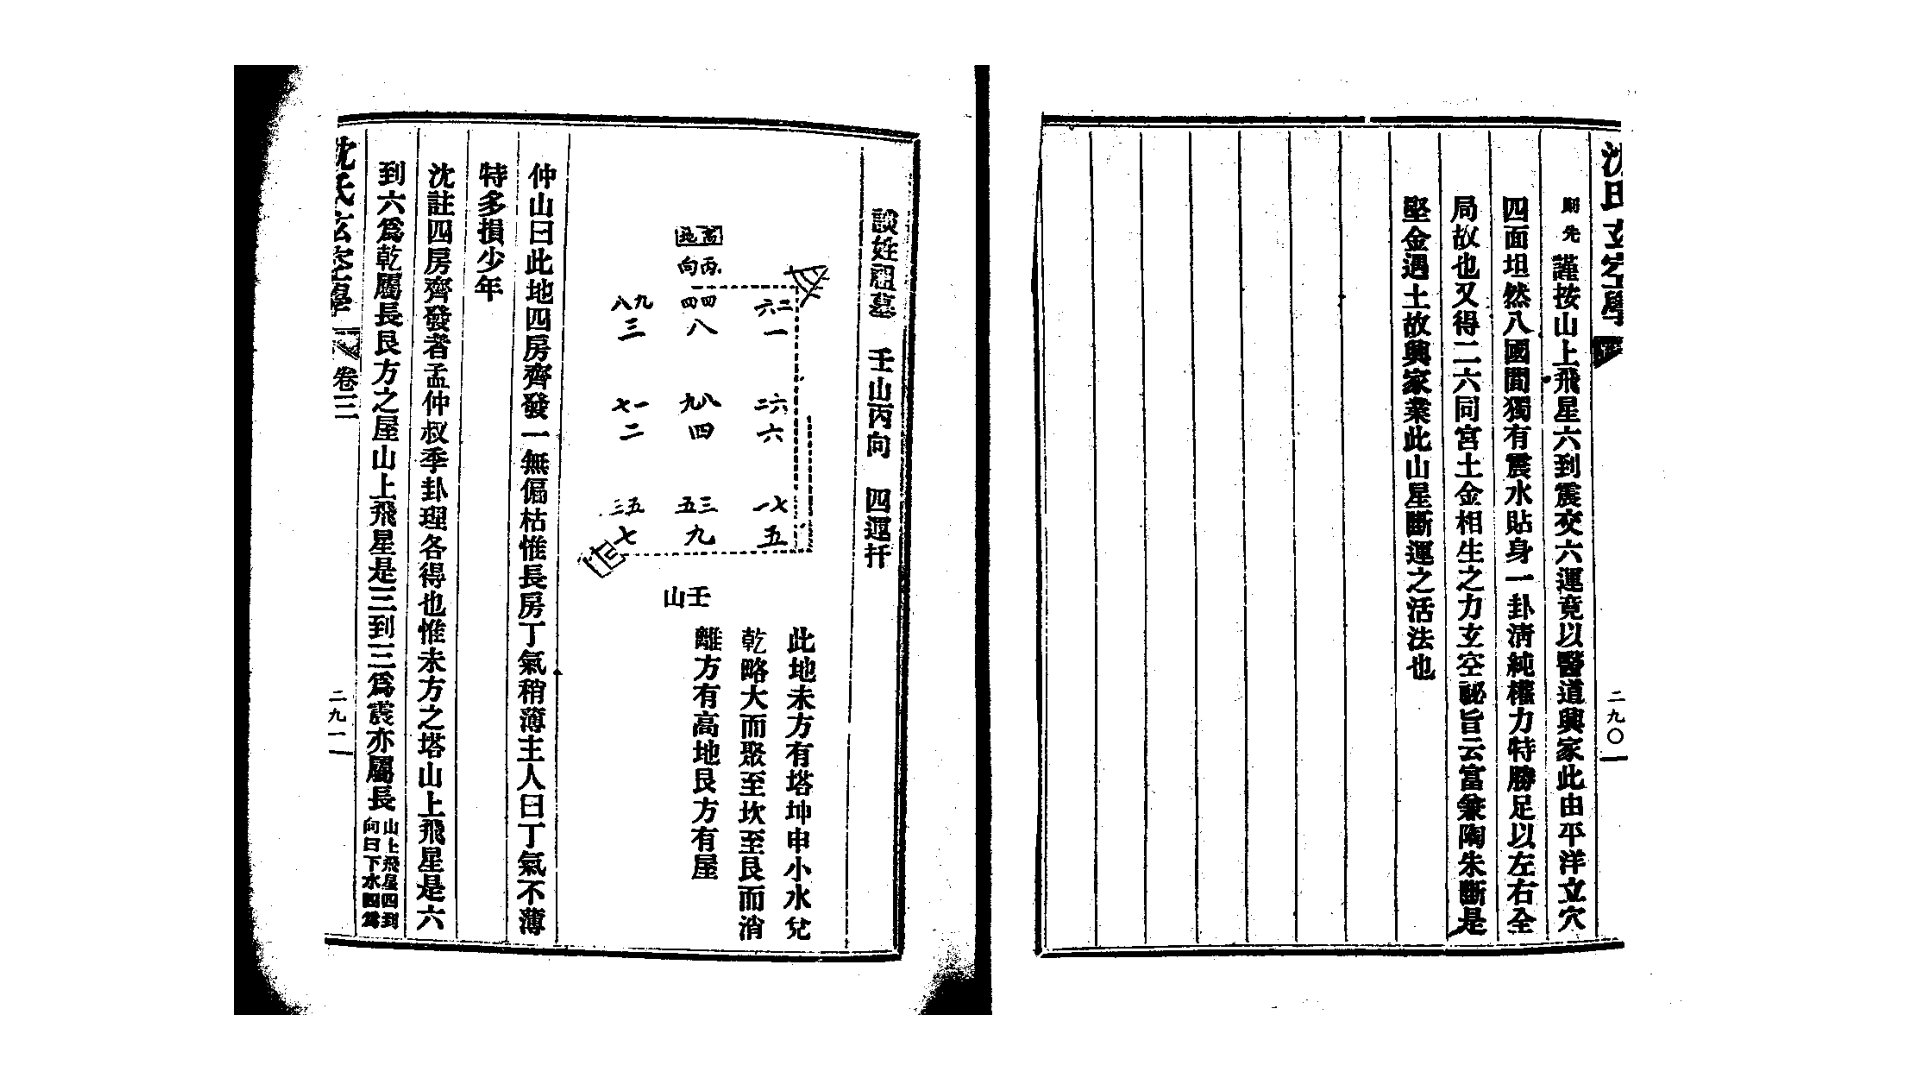 沈氏玄空學
二九〇
則先 謹按山上飛星六到震交六運竟以醫道興家此由平洋立穴
四面坦然八國間獨有震水貼身一卦清純權力特勝足以左右全
局故也又得二六同宮土金相生之力玄空祕旨云富兼陶朱斷是
堅金遇土故興家業此山星斷運之活法也
談姓祖墓 壬山丙向 四運扦
此地未方有塔坤申小水兌
乾略大而聚至坎至艮而消
離方有高地艮方有屋
高地
丙向
二六 四四 九八
一 八 三
六二 八九 一七
六 四 二
七一 三五 五三
五 九 七
壬山
仲山曰此地四房齊發一無偏枯惟長房丁氣稍薄主人曰丁氣不薄
特多損少年
沈註四房齊發者孟仲叔季卦理各得也惟未方之塔山上飛星是六
到六爲乾屬長艮方之屋山上飛星是三到三爲震亦屬長
山上飛星四到
向曰下水四爲
沈氏玄空學
卷三
二九一